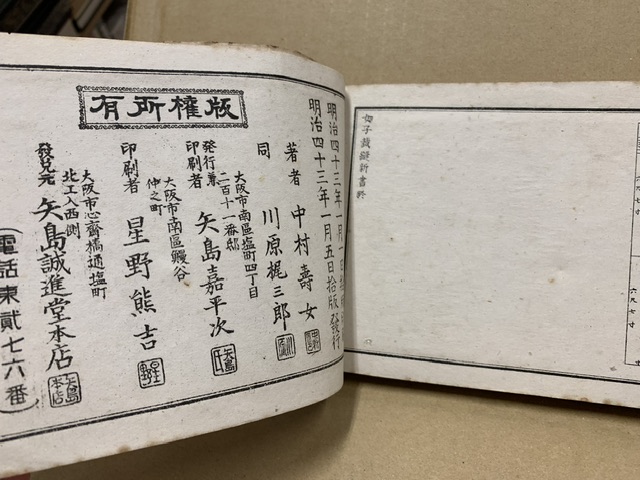 女子裁縫新書終
明治四十三年一月 日
明治四十三年一月五日拾版發行
著者 中村壽女
同 川原梶三郎
大阪市南區塩町四丁目
二百十一番邸
発行兼
印刷者 矢島嘉平次
大阪市南區鰻谷
仲之町
印刷者 星野熊吉
大阪市心齋橋通塩町
北エ入西側
發兌元 矢島誠進堂本店
(電話東貳七六番)
版權所有
矢島
本店